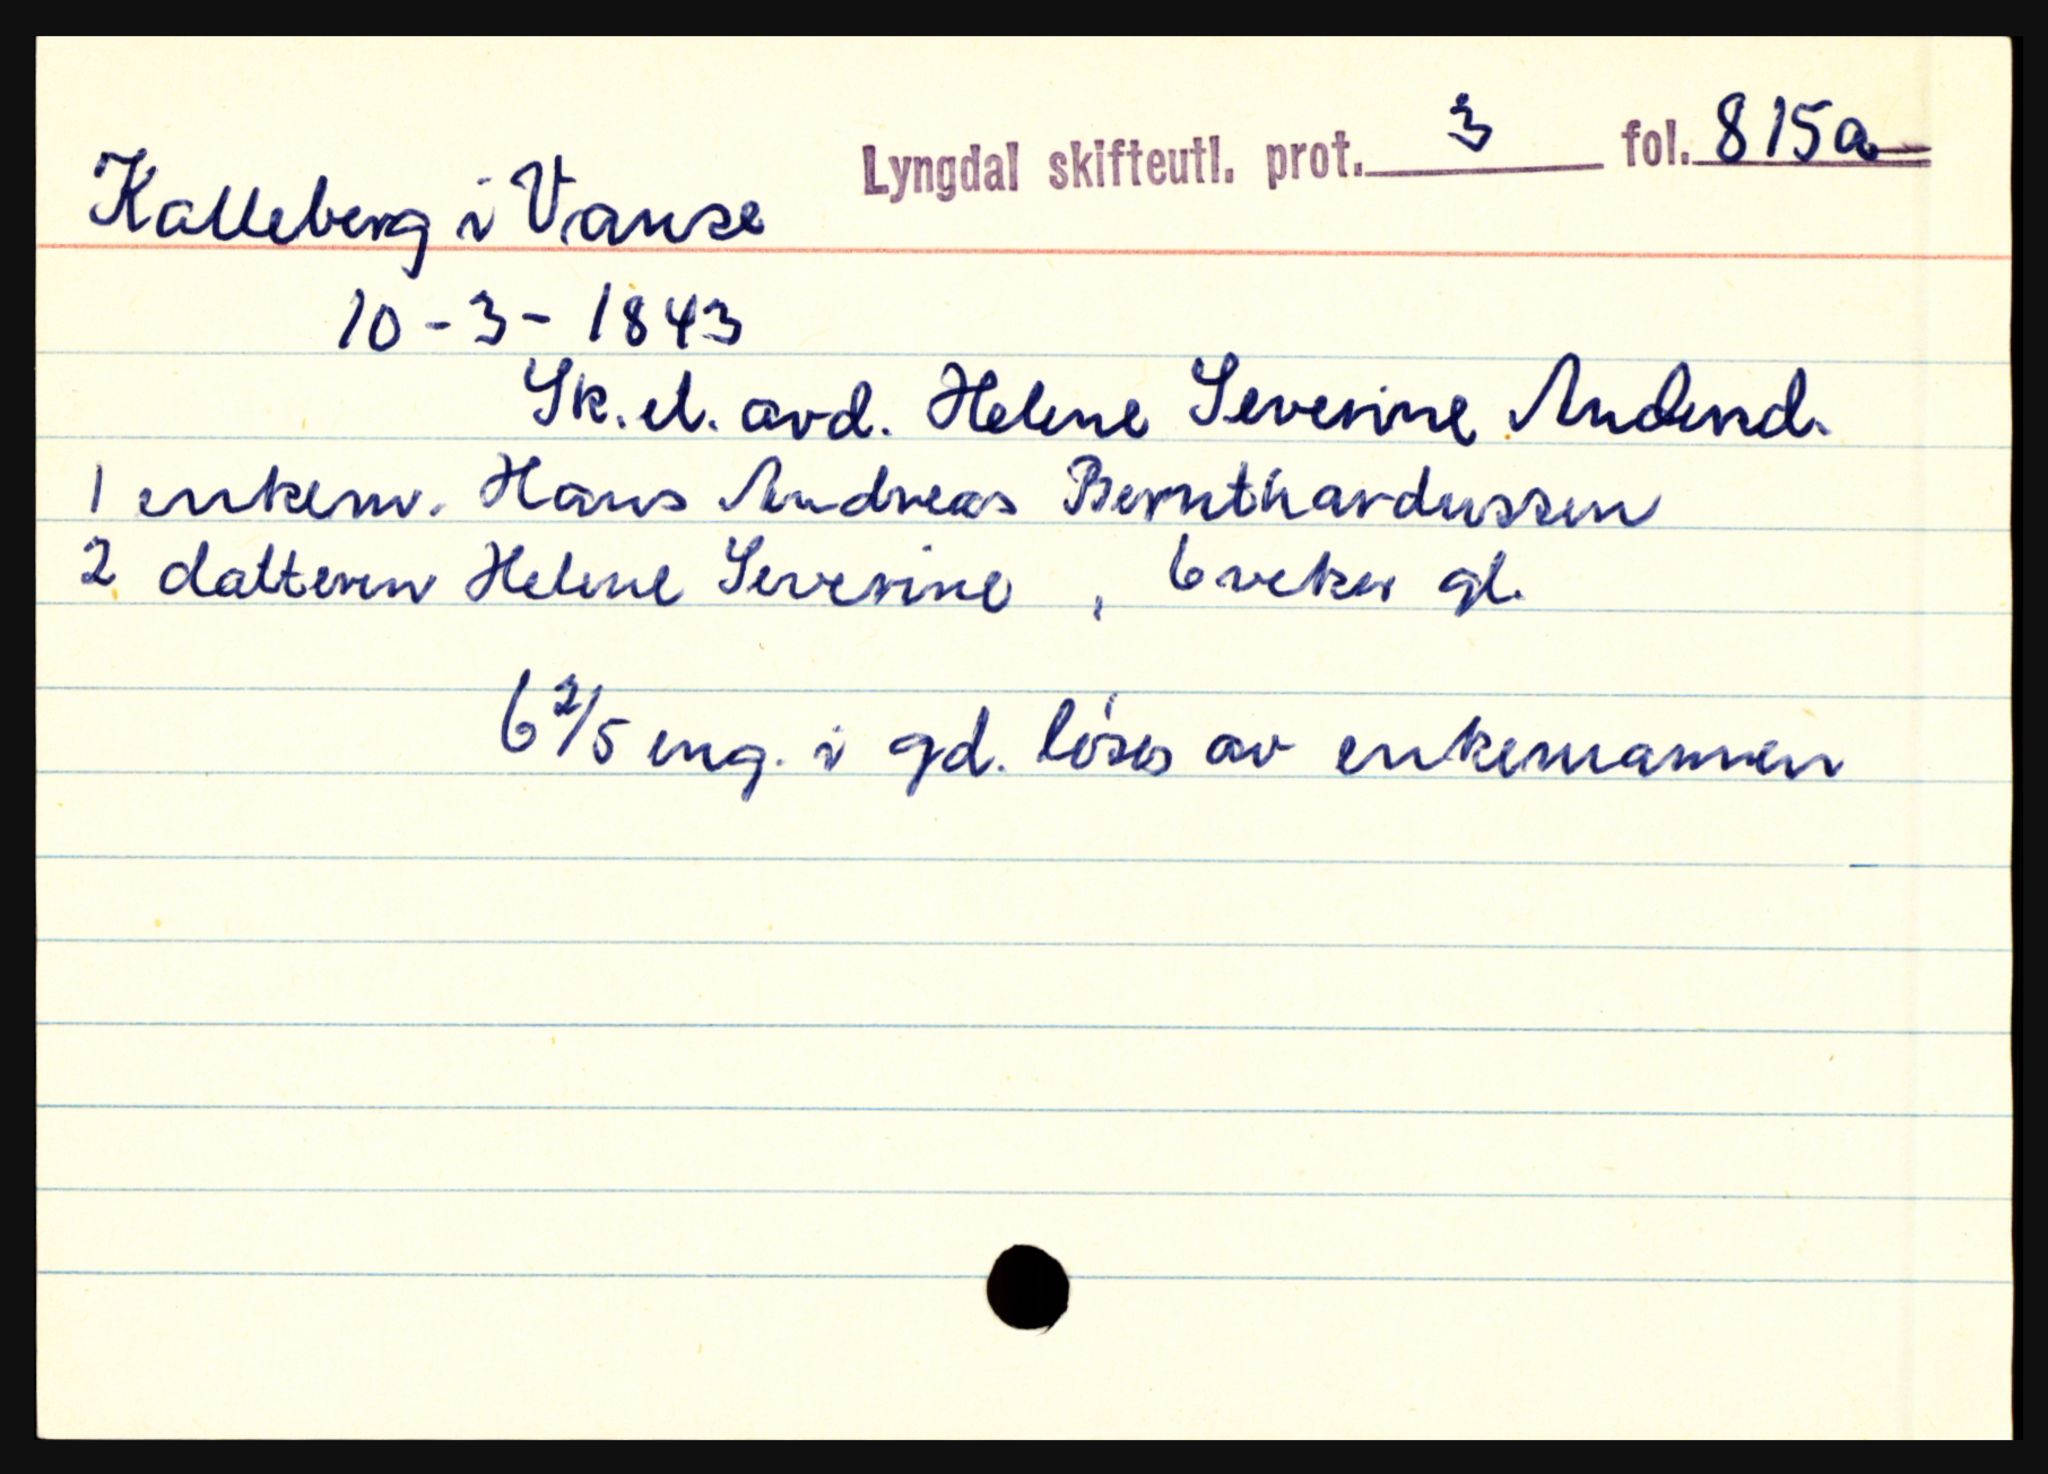 Lyngdal skifteutl. prot. 3 fol. 815a
Kalleberg i Vanse
10-3-1843
Sk. el. avd. Helene Severine Andersd.
1 enkem. Hans Andreas Bernthardussen
2 datteren Helene Severine, 6 veker gl.
6 2/5 eng. i gd. löses av enkemannen